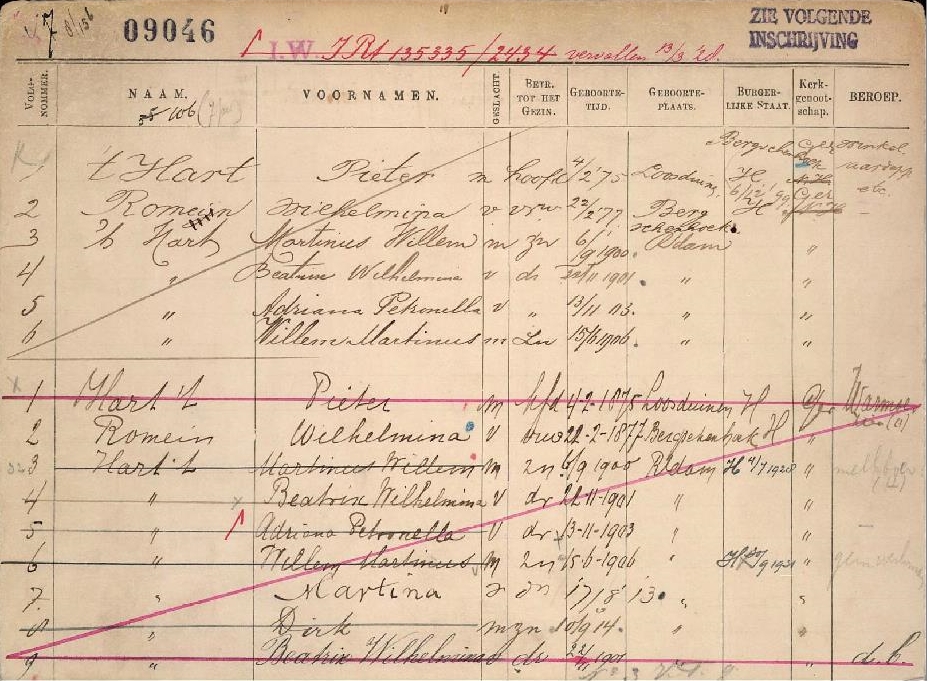 09046
ZIE VOLGENDE
INSCHRIJVING
I.W. J.Rt 135335/2434 vervallen 13/3
VOLG-NOMMER. NAAM. VOORNAMEN. GESLACHT. BETR. TOT HET GEZIN. GEBOORTE-TIJD. GEBOORTE-PLAATS. BURGER-LIJKE STAAT. Kerk-genoot-schap. BEROEP.
't Hart Pieter m hoofd 4/2 '75 Loosduinen H
2 Romein Wilhelmina v vrw 22/2 '77 Bergschenhoek H
3 't Hart Martinus Willem m zn 6/9 1900. R'dam "
4 " Beatrix Wilhelmina v dr 1901 " "
5 " Adriana Petronella v " 13/11 03. " "
6 " Willem Martinus m Zn 15/6 1906. " "
1 Hart 't Pieter m hfd 4-2-1875 Loosduinen H Ger
2 Romein Wilhelmina v vrw 22-2-1877 Bergschenhoek H "
3 Hart 't Martinus Willem m zn 6/9 1900 R'dam H 4/7 1928 "
4 " Beatrix Wilhelmina v dr 22-11-1901 " "
5 " Adriana Petronella v dr 13-11-1903 " "
6 " Willem Martinus m zn 15-6-1906 " "
7. " Martina dr 17/8 '13. " "
8 " Dirk m zn 10/9 14. " "
9 " Beatrix Wilhelmina v dr 22/11 1901 d.b.